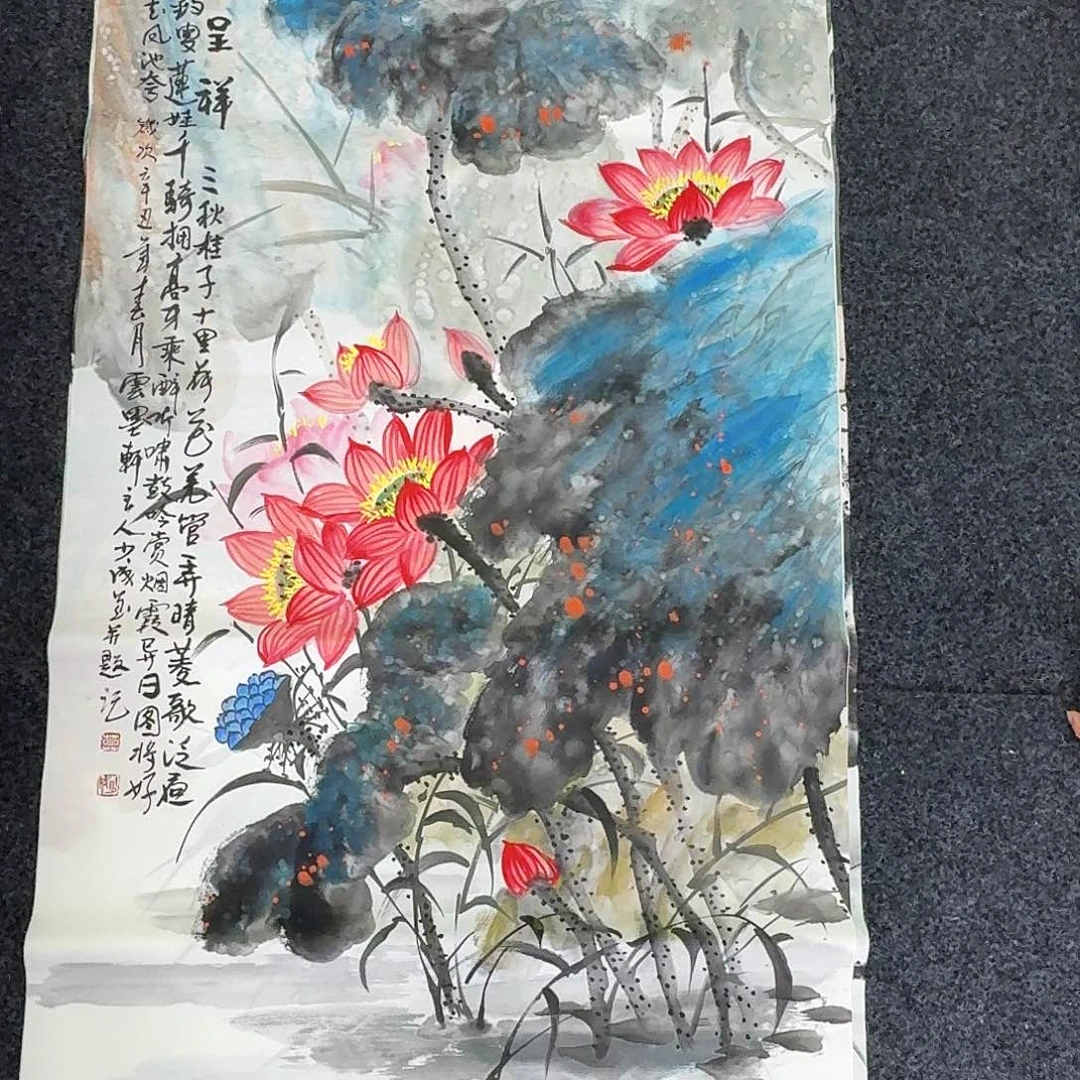 呈祥
三秋桂子十里荷花羌管弄晴菱歌泛夜
钓叟蓮娃千騎拥高牙乘醉听嘯鼓吟赏烟霞异日图将好
去凤池夸 歲次辛丑年春月雲墨軒主人少成画并题记